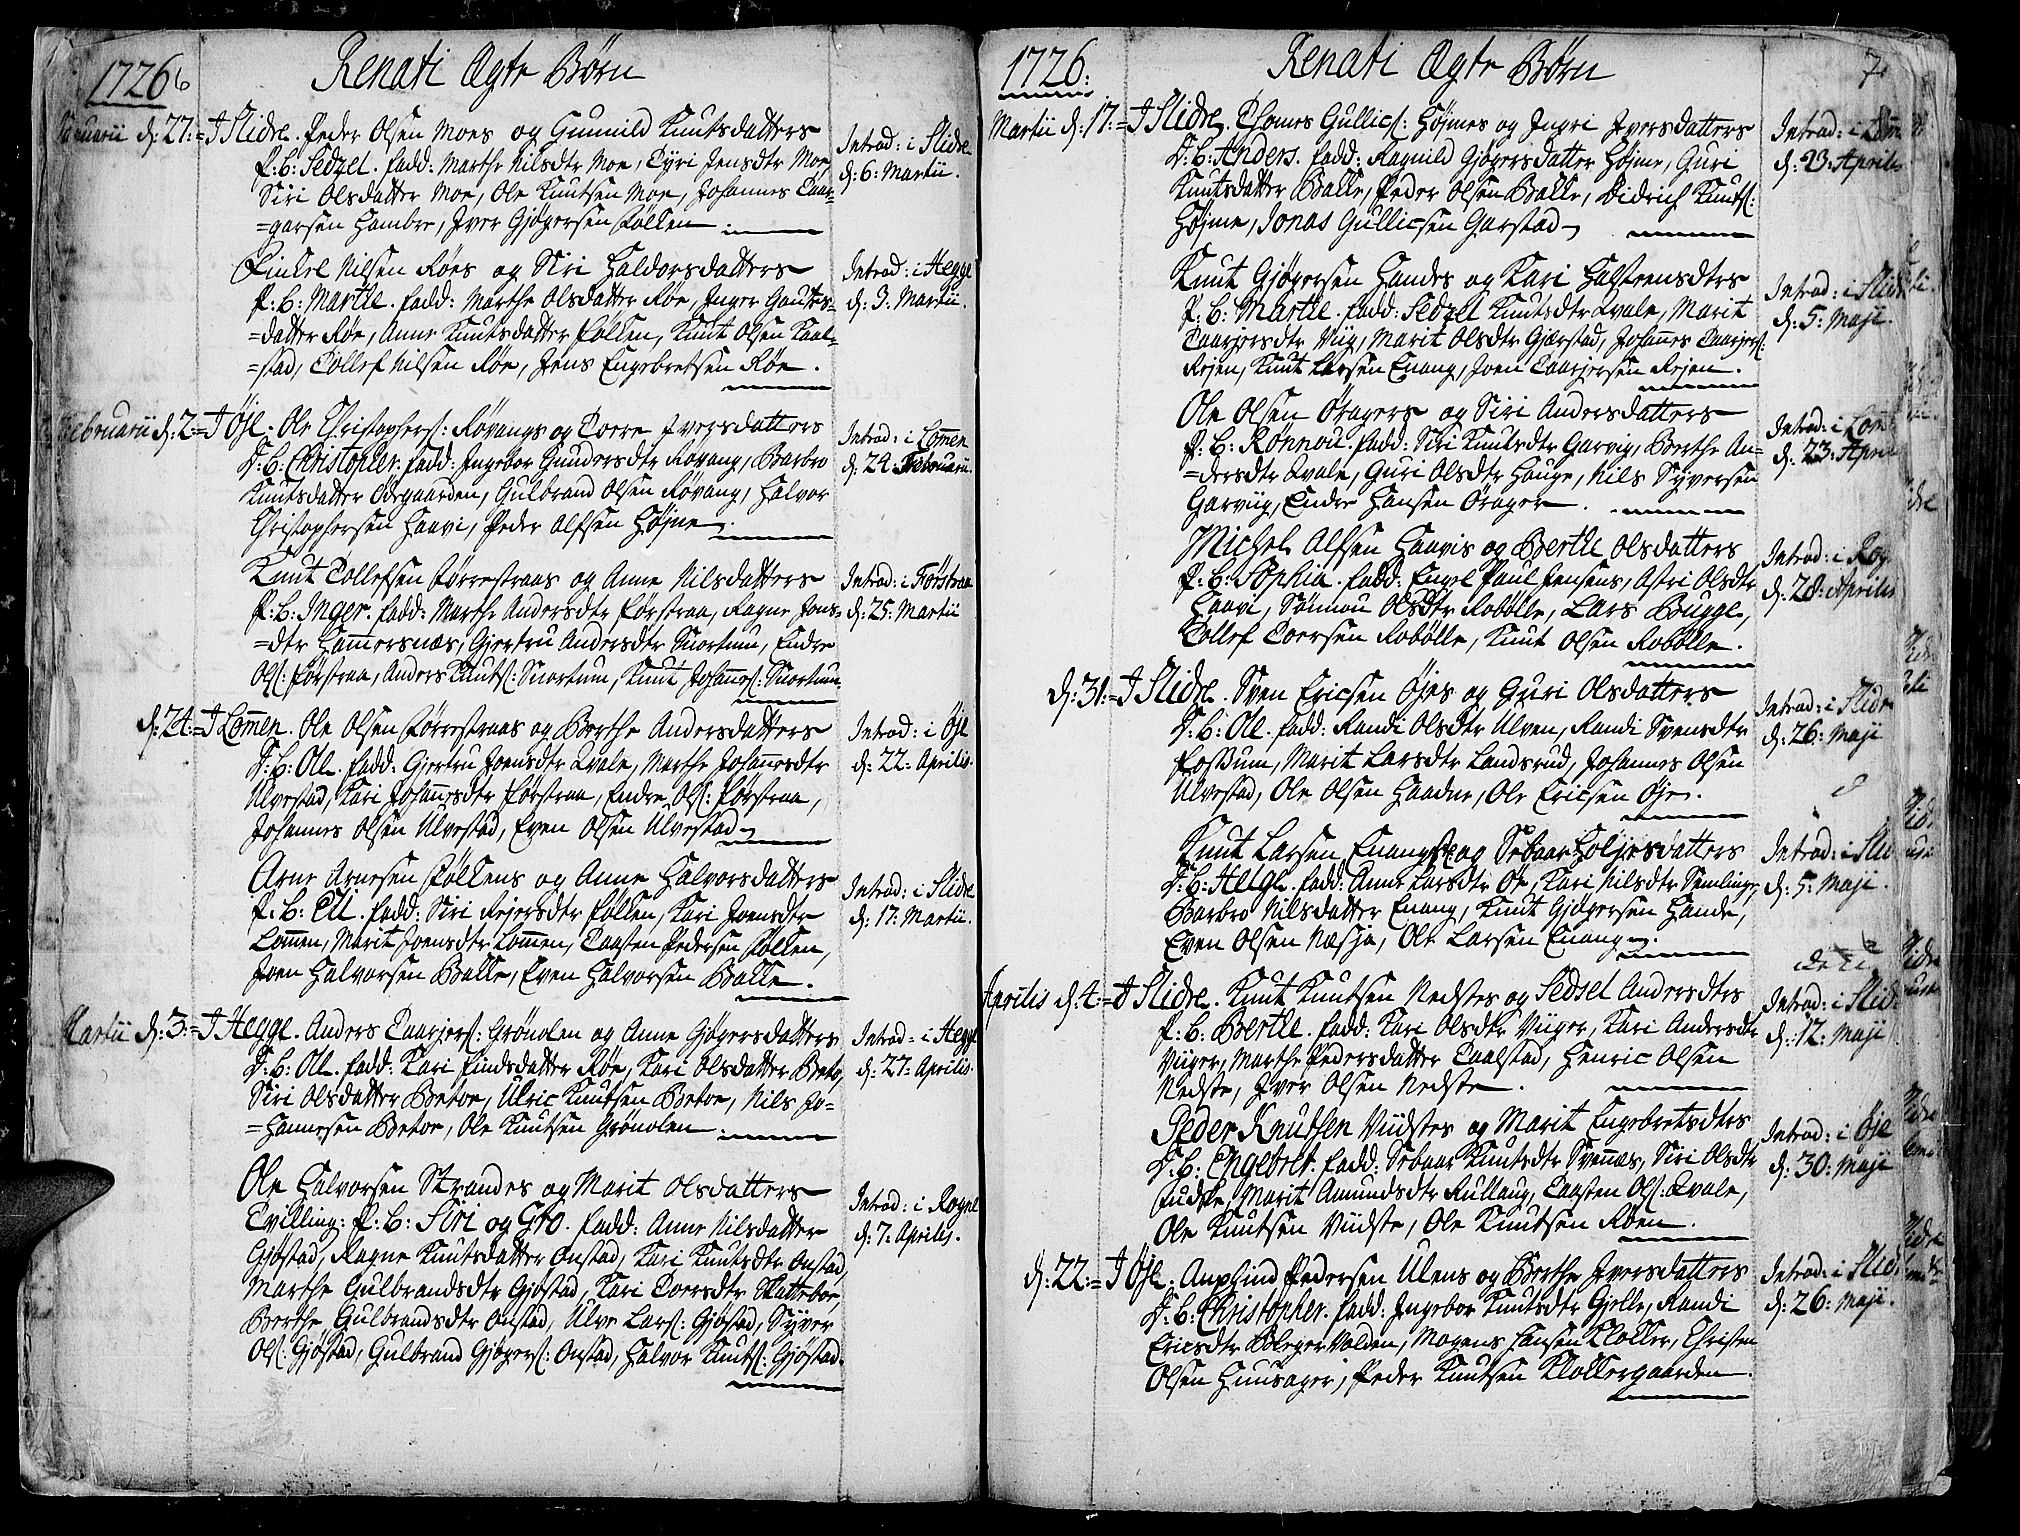 1726 6
Renati Ægte Børn
Januarii d: 27:= J Slidre. Peder Olsen Moes og Gunnild Knutsdatters
P: B: Sedzel. fadd: Marthe Nilsdtr Moe, Tyri Jensdtr Moe,
Siri Olsdatter Moe, Ole Knutsen Moe, Johannes Taar-
=garsen Hambre, Iver Gjøgersen Følken
Introd: i Slidre
d: 6: Martii.
Finkel Nilsen Røes og Siri Haldorsdatters
P: B: Marthe. fadd: Marthe Olsdatter Røe, Inger Gautes-
=datter Røe, Anne Knutsdatter Følken, Knut Olsen Kaal-
=stad, Tollef Nilsen Røe, Jens Engebretsen Røe.
Introd: i Hegge
d: 3: Martii.
Februarii d: 2:= J Øjl. Ole Christophers: Røvangs og Toere Iversdatters
D: B: Christopher. fadd: Ingebor Gundersdtr Røvang, Barbro
Knutsdatter Ødegaarden, Gulbrand Olsen Røvang, Halvor
Christophersen Haavi, Peder Alfsen Højne
Introd: i Lomen
d: 24: Februarii.
Knut Tollefsen Førrestraas og Anne Nilsdatters
P: B: Inger. fadd: Marthe Andersdtr Førstraa, Ragne Jons-
=dtr Hamersnæs, Gjertru Andersdtr Snortum, Endre
Ols: Førstraa, Anders Knuts: Snortum, Knut Johannes: Snortum
Introd: i Førstraa
d: 25: Martii
d: 24:= J Lomen. Ole Olsen Førrestraas og Berthe Andersdatters
D: B: Ole. fadd: Gjertru Joensdtr Qvale, Marthe Johannesdtr
Ulvestad, Kari Johannesdtr Førstraa, Endre Ols: Førstraa,
Johannes Olsen Ulvestad, Even Olsen Ulvestad
Introd: i Øjl
d: 22: Aprilis.
Arne Arnesen Følkens og Anne Halvorsdatters
P: B: Eli. fadd: Siri Rejersdtr Følken, Kari Joensdtr
Lomen, Marit Joensdtr Lomen, Taasten Pedersen Følken,
Joen Halvorsen Balke, Even Halvorsen Balke.
Introd: i Slidre
d: 17: Martii.
Martii d: 3:= J Hegge. Anders Taarjers: Grönolen og Anne Gjøgersdatters
D: B: Ole. fadd: Kari Findsdatter Røe, Kari Olsdatter Beto,
Siri Olsdatter Betoe, Ulric Knutsen Betoe, Nils Jo-
=hannesen Betoe, Ole Knutsen Grönolen
Introd: i Hegge
d: 27: Aprilis.
Ole Halvorsen Strandes og Marit Olsdatters
Tvilling: P: B: Siri og Gro. fadd: Anne Nilsdatter
Gjøstad, Ragne Knutsdatter Onstad, Kari Knutsdtr Onstad,
Marthe Gulbrandsdtr Gjøstad, Kari Toersdtr Skattebo,
Berthe Gulbrandsdtr Onstad, Ulve Lars: Gjøstad, Syver
Ols: Gjøstad, Gulbrand Gjøgers: Onstad, Halvor Knuts: Gjøstad.
Introd: i Rogne
d: 7: Aprilis.
1726:
Renati Ægte Børn
7
Martii d: 17:= J Slidre. Thomes Gullics: Højmes og Ingri Iversdatters
D: B: Anders. fadd: Ragnild Gjøgersdatter Højme, Guri
Knutsdatter Balke, Peder Olsen Balke, Didrich Knuts:
Højme, Jonas Gullicsen Garstad
Introd: i Lom
d: 23: Aprilis
Knut Gjøgersen Handes og Kari Halstensdtrs
P: B: Marthe. fadd: Sedzel Knutsdtr Qvale, Marit
Taarjersdtr Viig, Marit Olsdtr Gjærstad, Johannes Taarjers:
Rejen, Knut Larsen Enang, Joen Taarjersen Rejen.
Introd: i Slidr
d: 5: Maji.
Ole Olsen Øragers og Siri Andersdatters
P: B: Rönnou. fadd: Siri Knutsdtr Garvig, Berthe An-
=dersdtr Qvale, Guri Olsdtr Hauge, Nils Syversen
Garviig, Endre Hansen Orager.
Introd: i Lom
d: 23: April
Michel Alfsen Haavis og Berthe Olsdatters
P: B: Sophia. fadd: Engel Paul Jensens, Astri Olsdtr
Haavi, Sönnou Olsdtr Robölle, Lars Brugge,
Tollef Toersen Robölle, Knut Olsen Robölle.
Introd: i Rog
d: 28: Aprilis
d: 31:= J Slidre. Sven Ericsen Øjes og Guri Olsdatters
D: B: Ole. fadd: Randi Olsdtr Ulven, Randi Svensdtr
Fossum, Marit Larsdtr Landsrud, Johannes Olsen
Ulvestad, Ole Olsen Haadne, Ole Ericsen Øje.
Introd: i Slidr
d: 26: Maji
Knut Larsen Enangs og Sebaar Holjesdatters
D: B: Helge. fadd: Anne Larsdtr Oe, Kari Nilsdtr Semling,
Barbro Nilsdatter Enang, Knut Gjøgersen Hande,
Even Olsen Næsja, Ole Larsen Enang.
Introd: i Sli
d: 5: Maji.
Aprilis d. 4:= J Slidre. Knut Knutsen Nedstes og Sedsel Andersdtrs
P: B: Berthe. fadd: Kari Olsdtr Viiger, Kari Andersdtr
Viiger, Marthe Pedersdatter Taalstad, Henric Olsen
Nedste, Iver Olsen Nedste.
Introd: i Slid:
d: 12: Maji
Peder Knutsen Viidstes og Marit Engebretsdtrs
D: B: Engebret. fadd: Sebaar Knutsdtr Svennæs, Siri Olsdtr
Ludske, Marit Amundsdtr Rullang, Taasten Ols: Qvale,
Ole Knutsen Viidste, Ole Knutsen Röen.
Introd: i Øjl
d: 30: Maji
d: 22:= J Øjl. Anphind Pedersen Ulens og Berthe Iversdatters
D: B: Christopher. fadd: Ingebor Knutsdtr Gjelle, Randi
Ericsdtr Bleger Valden, Mogens Hansen Klokker, Christen
Olsen Huusager, Peder Knutsen Klokkergaarden.
Introd: i Slid
d: 26: Maji.